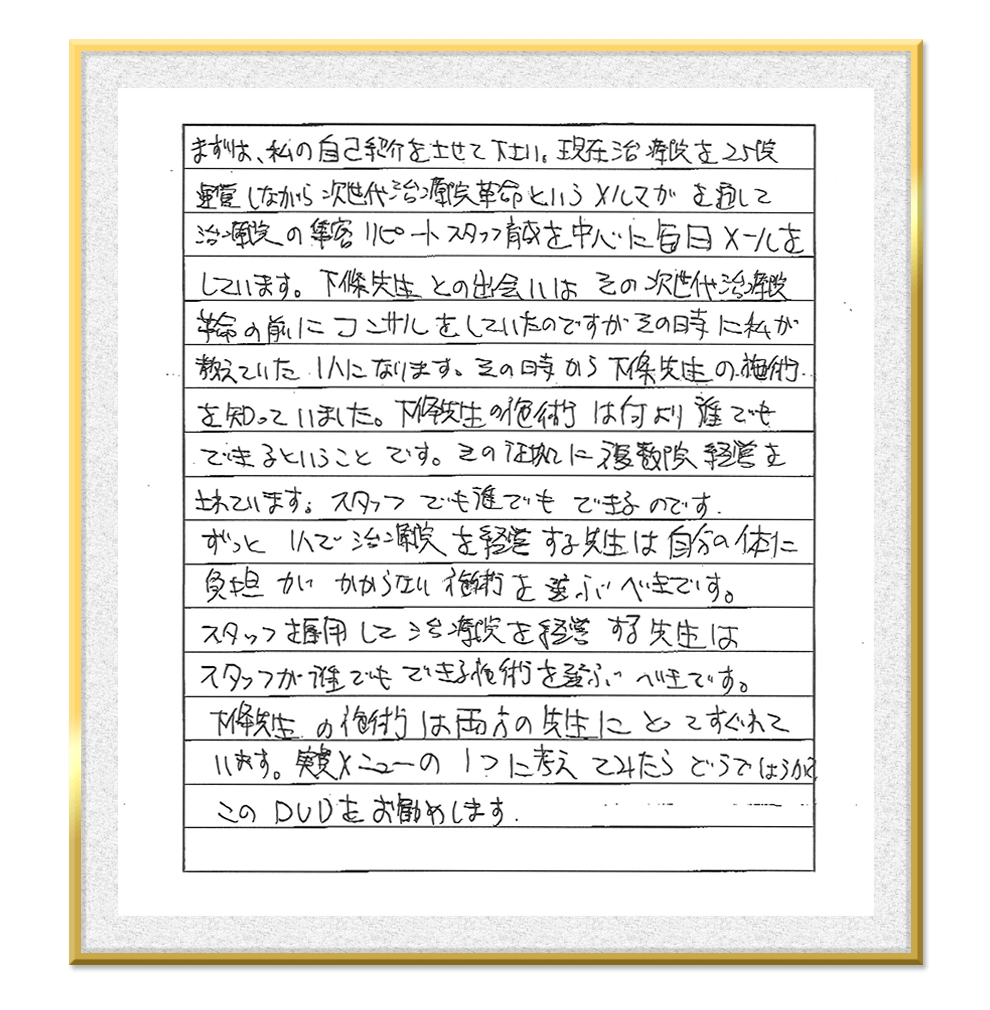 まずは、私の自己紹介をさせて下さい。現在治療院を25院
運営しながら次世代治療院革命というメルマガを通して
治療院の集客リピートスタッフ育成を中心に毎日メールを
しています。下條先生との出会いはその次世代治療院
革命の前にコンサルをしていたのですがその時に私が
教えていた1人になります。その時から下條先生の施術
を知っていました。下條先生の施術は何より誰でも
できるということです。その証拠に複数院経営を
されています。スタッフでも誰でもできるのです.
ずっと1人で治療院を経営する先生は自分の体に
負担がかからない施術を選ぶべきです。
スタッフを雇用して治療院を経営する先生は
スタッフが誰でもできる施術を選ぶべきです。
下條先生の施術は両方の先生にとてすぐれて
います。実費メニューの1つに考えてみたらどうでしょうか?
このDVDをお勧めします.